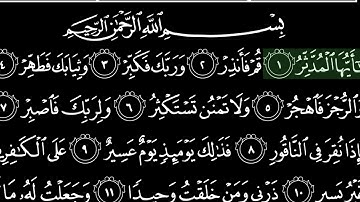 بِسْمِ اللَّهِ الرَّحْمَٰنِ الرَّحِيمِ
يَٰٓأَيُّهَا الْمُدَّثِّرُ ١ قُمْ فَأَنذِرْ ٢ وَرَبَّكَ فَكَبِّرْ ٣ وَثِيَابَكَ فَطَهِّرْ ٤
وَالرُّجْزَ فَاهْجُرْ ٥ وَلَا تَمْنُن تَسْتَكْثِرُ ٦ وَلِرَبِّكَ فَاصْبِرْ ٧
فَإِذَا نُقِرَ فِي النَّاقُورِ ٨ فَذَٰلِكَ يَوْمَئِذٍ يَوْمٌ عَسِيرٌ ٩ عَلَى الْكَٰفِرِينَ
غَيْرُ يَسِيرٍ ١٠ ذَرْنِي وَمَنْ خَلَقْتُ وَحِيدًا ١١ وَجَعَلْتُ لَهُۥ مَا